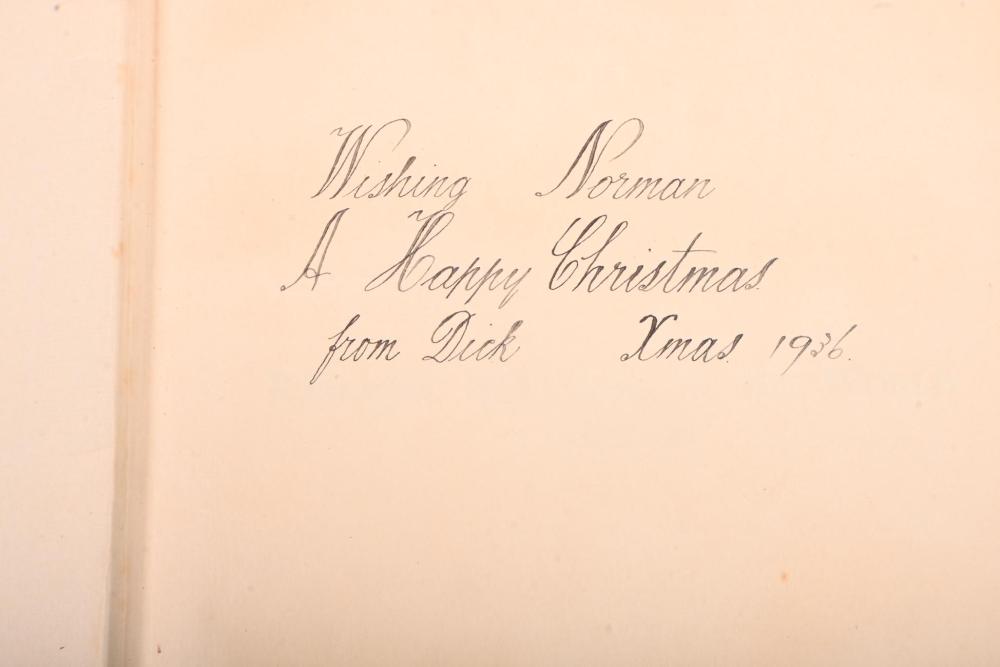 Wishing Norman
A Happy Christmas
from Dick Xmas 1936.